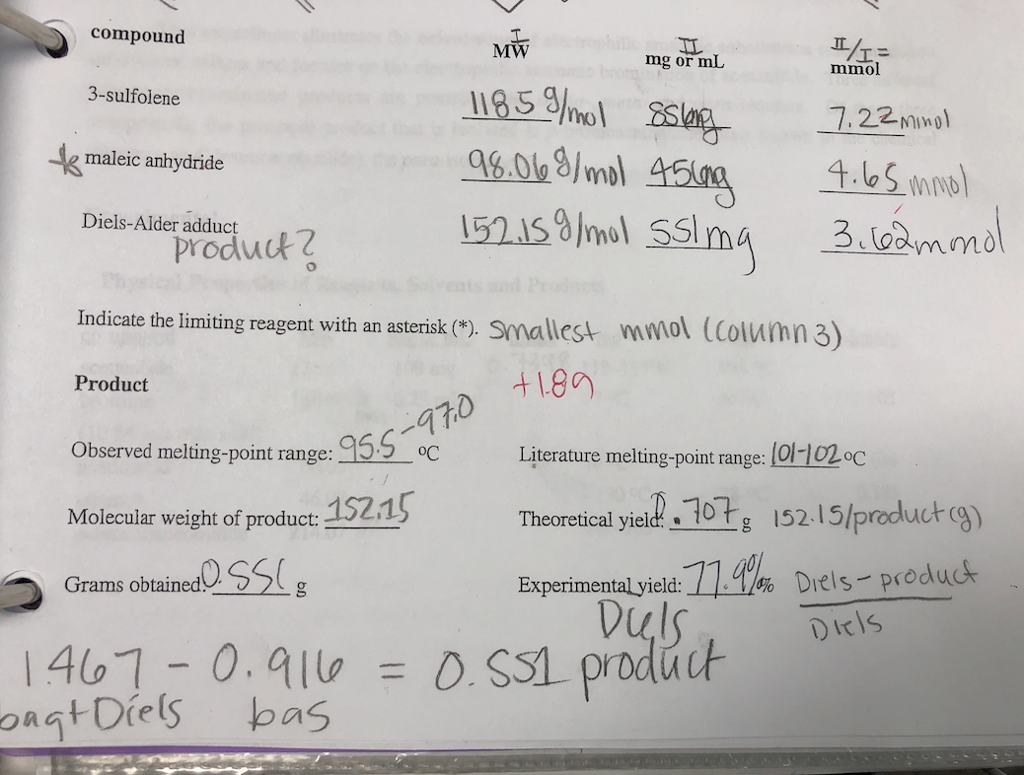 compound I MW II mg or mL II/I = mmol
3-sulfolene 118.5 g/mol 856mg 7.22 mmol
* maleic anhydride 98.06 g/mol 456mg 4.65 mmol
Diels-Alder adduct 152.15 g/mol 551mg 3.62 mmol
product?
Indicate the limiting reagent with an asterisk (*). smallest mmol (column 3)
Product +1.89
Observed melting-point range: 95.5-97.0 °C Literature melting-point range: 101-102 °C
Molecular weight of product: 152.15 Theoretical yield: .707 g 152.15/product (g)
Grams obtained: 0.551 g Experimental yield: 77.9% % Diels - product
Diels Diels
1.467 - 0.916 = 0.551 product
bag+Diels bas